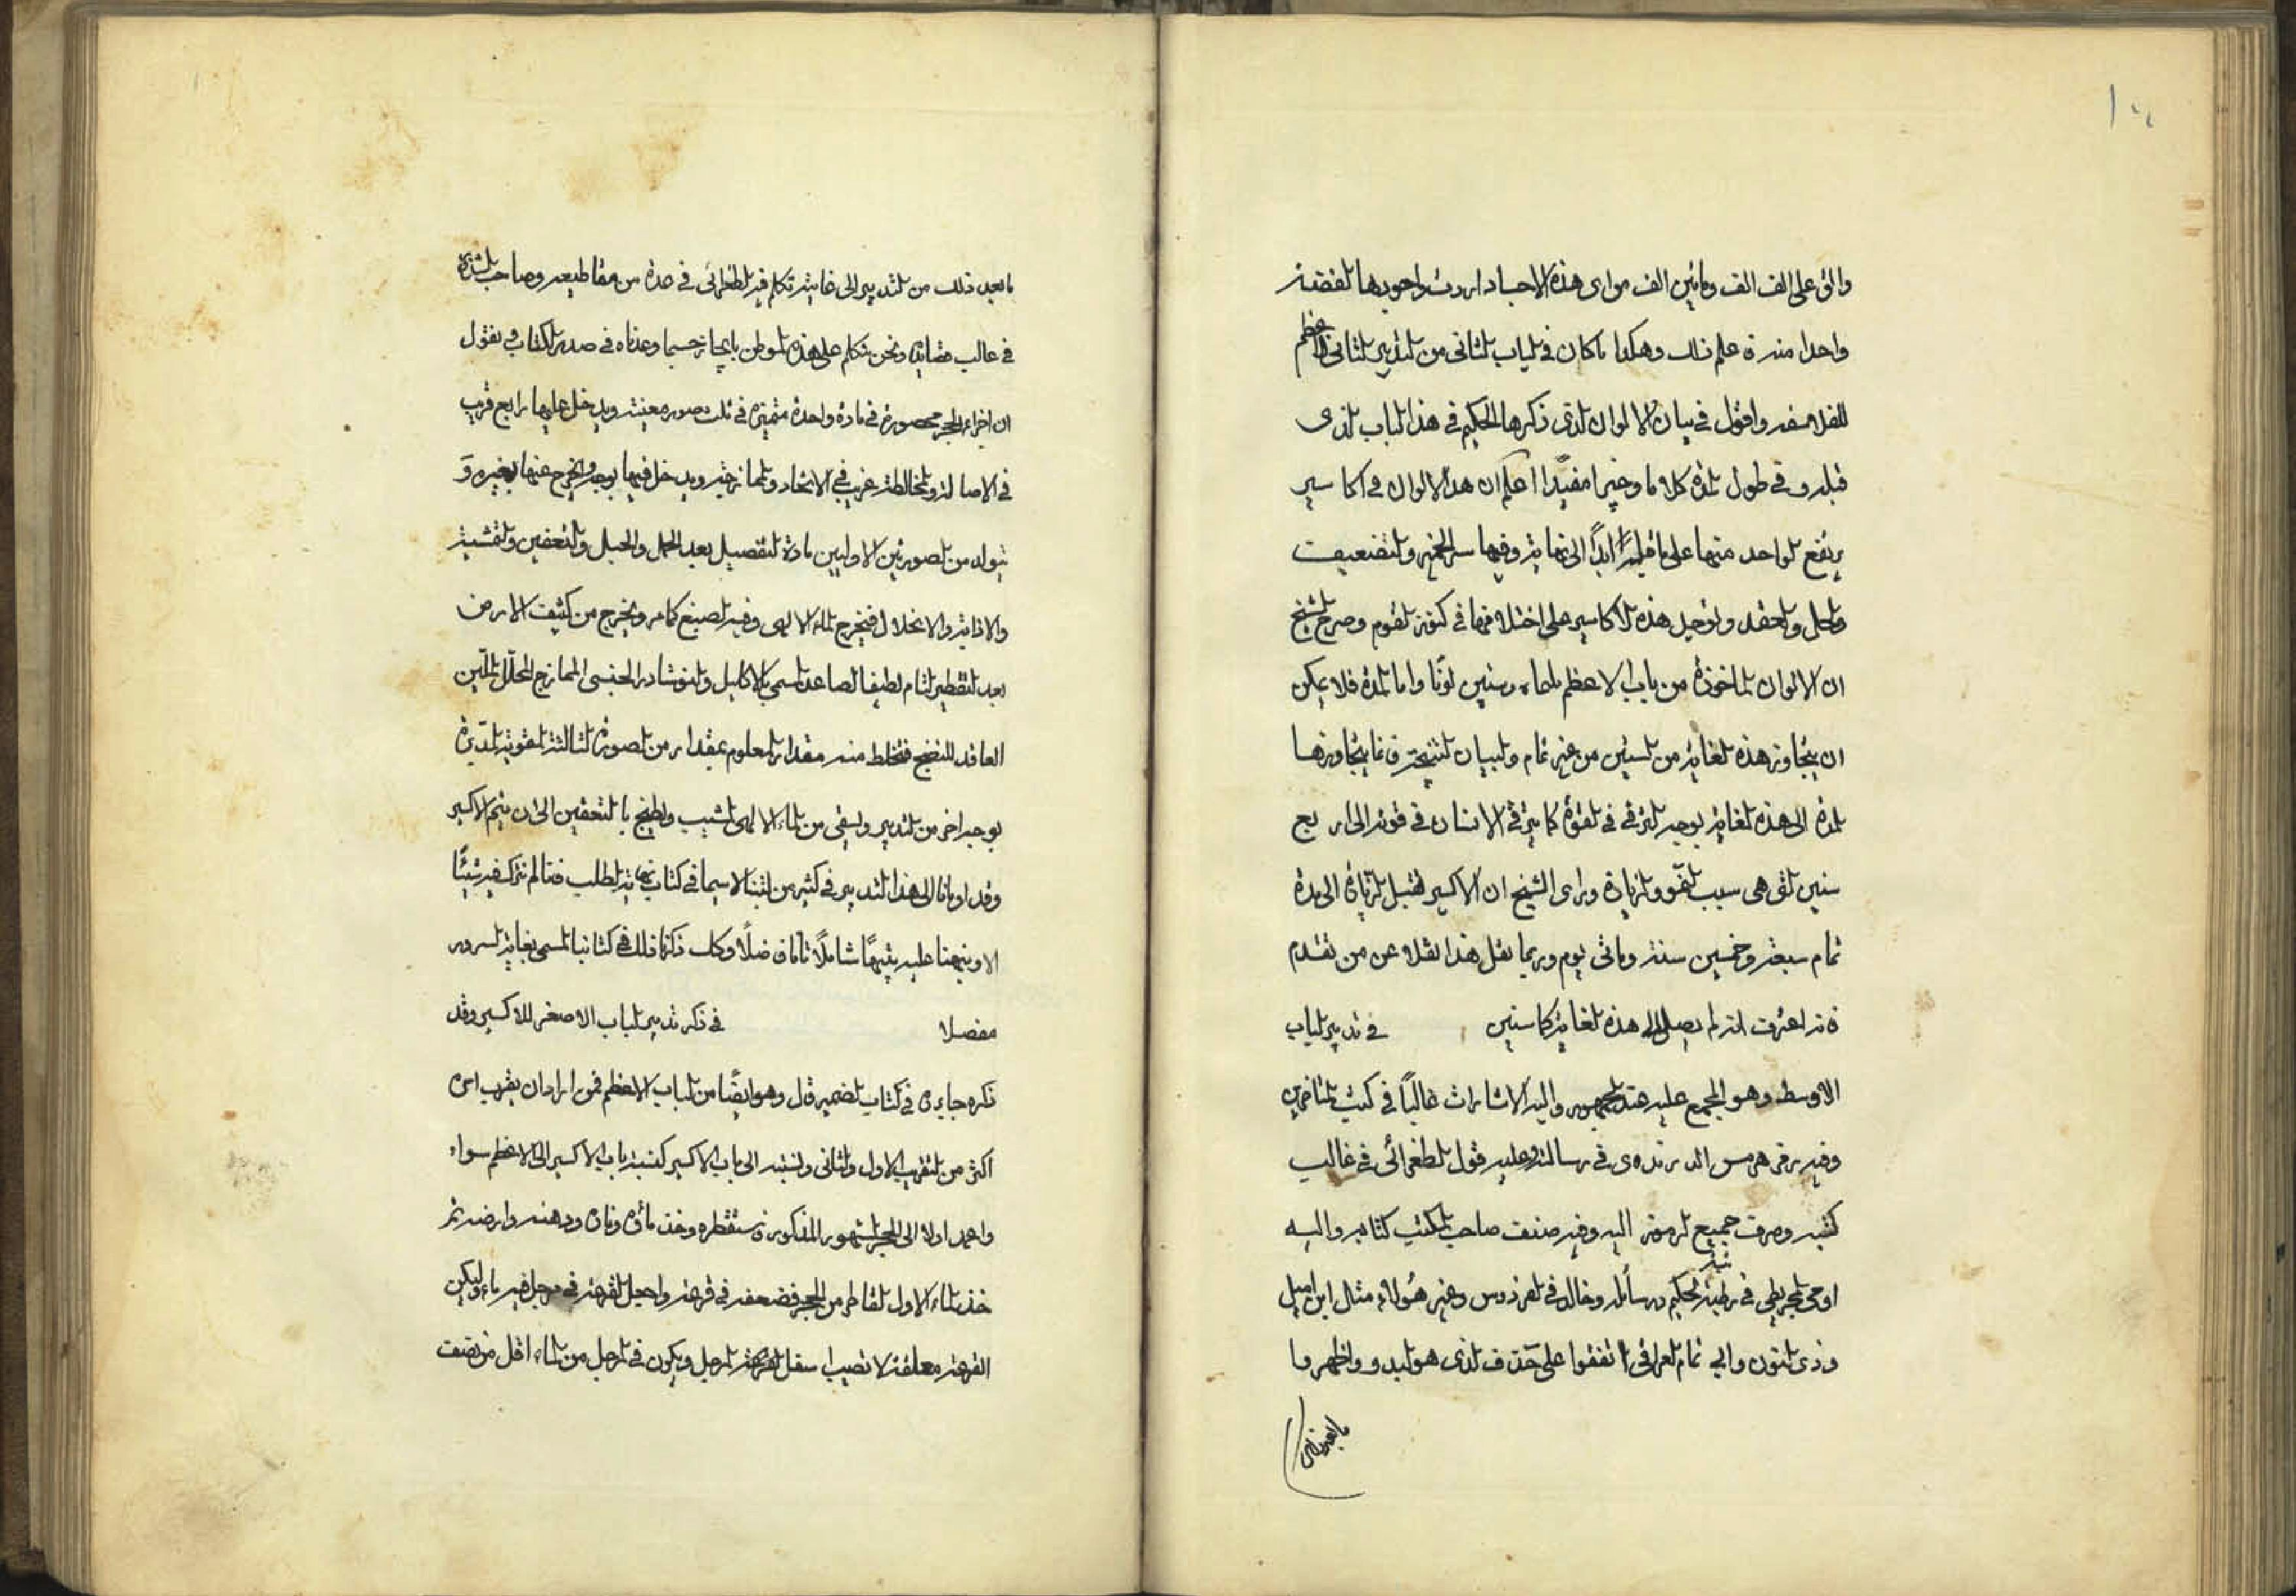 ١٠٤
والق على الف الف ومائين الف من اى هذه الاجساد اردت واجودها الفضة
واحدا منه ة علم ذلك وهكذا ما كان فى الباب الثانى من التدبير الثانى الاعظم
للفلاسفه واقول فى بيان الالوان التى ذكرها الحكيم فى هذا الباب الذى
قبله وفى طول المدة كلاما وجيزا مفيدًا اعلم ان هذا الالوان فى اكاسير
يرتفع الواحد منها على ما قبله ابدًا الى نهاية وفيها سر الخمير والتضعيف
والحل والعقد وتوجد هذه الاكاسير على اختلافها فى كنوز القوم وصرح الشيخ
ان الالوان الماخوذة من باب الاعظم وستين لونًا واما المدة فلا يمكن
ان يتجاوز هذه الغاية من السنين من غير تمام والبيان يتجاوزها
المدة الى هذه الغاية بوجه الترقى فى القوة كما يترقى الانسان فى قوته الى اربع
سنين التى هى سبب النمو والزيادة وراى الشيخ ان الاكسير يقبل الزيادة الى مدة
تمام سبعة وخمسين سنة ومائى يوم وربما نقل هذا نقلا عن من تقدم
فانه اعترف انه لم يصل الى هذه الغاية كما سنبين فى تدبير الباب
الاوسط وهو المجمع عليه عند الجمهور واليه الاشارات غالبًا فى كتب المتاخرين
وفيه رمز هرمس فى رسالته وعليه قول الطغرائى فى غالب
كتبه وصرف جميع الرموز اليه وفيه صنف صاحب المكتسب كتابه واليه
اومى المجريطى فى رتبة الحكيم ورسائله وخالد فى الفردوس وغير هؤلاء مثال ابن اميل
وذى النون وابى تمام العراقى اتفقوا على حذف الذى هو البدو واظهروا
ما بعد ذلك
ما بعد ذلك من التدبير الى غايته تكلم فيه الطغرائى فى عدة من مقاطيعه وصاحب الشذور
فى غالب قصايده ونحن نتكلم على هذه المواطن بايجاز حسبما وعدناه فى صدر الكتاب فنقول
ان اجزاء الحجر محصورة فى مادة واحدة متميزة فى ثلث صور معينة ويدخل عليها رابع قريب
فى الاصالة والمخالطة غريب فى الاتحاد والممازجة ويدخل فيها بوجه ويخرج عنها بغيره و
يتولد من الصورتين الاوليين مادة التفصيل بعد الحمل والحبل والتعفين والتشبيب
والاذابة والانحلال فيخرج الماء الالهى وفيه الصبغ كما مر ويخرج من كثيف الارض
بعد التقطير التام لطيفها الصاعد المسمى بالاكليل والنوشادر الجنسى الممازج المحلل الملين
العاقد للنضج فتخلط منه مقدار المعلوم بمقدار من الصورة الثالثة القوية المدبرة
بوجه اخر من التدبير ويسقى من الماء الالهى المشبب ويطبخ بالتعفين الى ان يتم الاكسير
وقد اومانا الى هذا التدبير فى كثير من كتبنا لا سيما فى كتاب نهاية الطلب فانا لم نترك فيه شيئًا
الا ونبهنا عليه تنبيهًا شاملًا تامًا فاضلًا وكك ذكرنا ذلك فى كتابنا المسمى بغاية السرور
مفصلا فى ذكر تدبير الباب الاصغر للاكسير وقد
ذكره جابر فى كتاب الضمير قال وهو ايضًا من الباب الاعظم فمن اراد ان يقرب امره
اكثر من التقريب الاول والثانى ونسبته الى باب الاكبر كنسبة باب الاكبر الى الاعظم سواء
واعمد اولا الى الحجر المشهور المذكور فاستقطره وخذ مائه وناره ودهنه وارضه ثم
خذ الماء الاول القاطر من الحجر فضعه فى قرعة واجعل القرعة فى مرجل فيه ماء وليكن
القرعة معلقة لا تصيب اسفل القرعة المرجل ويكون فى المرجل من الماء اقل من نصف